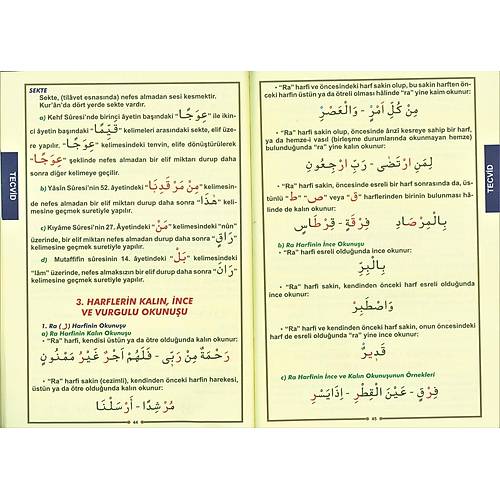 SEKTE
Sekte, (tilâvet esnasında) nefes almadan sesi kesmektir.
Kur'ân'da dört yerde sekte vardır.
a) Kehf Sûresi'nde birinci âyetin başındaki "عِوَجًا" ile ikin-
ci âyetin başındaki "قَيِّمًا" kelimeleri arasındaki sekte, elif üze-
re yapılır. "عِوَجًا" kelimesindeki tenvin, elife dönüştürülerek
"عِوَجًا" şeklinde nefes almadan bir elif miktarı durup daha
sonra diğer kelimeye geçilir.
b) Yâsîn Sûresi'nin 52. âyetindeki "مِنْ مَرْقَدِنَا" kelimesin-
de nefes almadan bir elif miktarı durup daha sonra "هٰذَا" keli-
mesine geçmek suretiyle yapılır.
c) Kıyâme Sûresi'nin 27. Âyetindeki "مَنْ" kelimesindeki "nûn"
üzerinde, bir elif miktarı nefes almadan durup daha sonra "رَاقٍ"
kelimesine geçmek suretiyle yapılır.
d) Mutaffifîn sûresinin 14. âyetindeki "بَلْ" kelimesindeki
"lâm" üzerinde, nefes almaksızın bir elif durup daha sonra "رَانَ"
kelimesine geçmek suretiyle yapılır.
3. HARFLERİN KALIN, İNCE
VE VURGULU OKUNUŞU
1. Ra (ر) Harfinin Okunuşu
a) Ra Harfinin Kalın Okunuşu
• "Ra" harfi, kendisi üstün ya da ötre olduğunda kalın okunur:
رَحْمَةٌ مِنْ رَبِّى - فَلَهُمْ اَجْرٌ غَيْرُ مَمْنُونٍ
• "Ra" harfi sakin (cezimli), kendinden önceki harfin harekesi,
üstün ya da ötre olduğunda kalın okunur:
مُرْشِدًا - اَرْسَلْنَا
44
TECVİD
• "Ra" harfi ve öncesindeki harf sakin olup, bu sakin harften ön-
ceki harfin üstün ya da ötreli olması hâlinde "ra" yine kalın okunur:
مِنْ كُلِّ اَمْرٍ - وَالْعَصْرِ
• "Ra" harfi sakin olup, öncesinde ârızi kesreye sahip bir harf,
ya da hemze-i vasıl (birleşme durumlarında okunmayan hemze)
bulunduğunda "ra" yine kalın okunur:
لِمَنِ ارْتَضٰى - رَبِّ ارْجِعُونِ
• "Ra" harfi sakin, öncesinde esreli bir harf sonrasında da, üs-
tünlü "ق" veya "ص" "ط" harflerinden birinin bulunması hâ-
linde de kalın okunur:
بِالْمِرْصَادِ فِرْقَةٍ - قِرْطَاسٍ
b) Ra Harfinin İnce Okunuşu
• "Ra" harfi esreli olduğunda ince okunur:
بِالْبِرِّ
• "Ra" harfi sakin, kendinden önceki harf esreli olduğunda
ince okunur:
وَاصْطَبِرْ
• "Ra" harfi ve kendinden önceki harf sakin, onun öncesindeki
harf de esreli olduğunda ince okunur:
قَدِيرٌ
c) Ra Harfinin İnce ve Kalın Okunuşunun Örnekleri
فِرْقٍ - عَيْنَ الْقِطْرِ - اِذَايَسْرِ
45
TECVİD